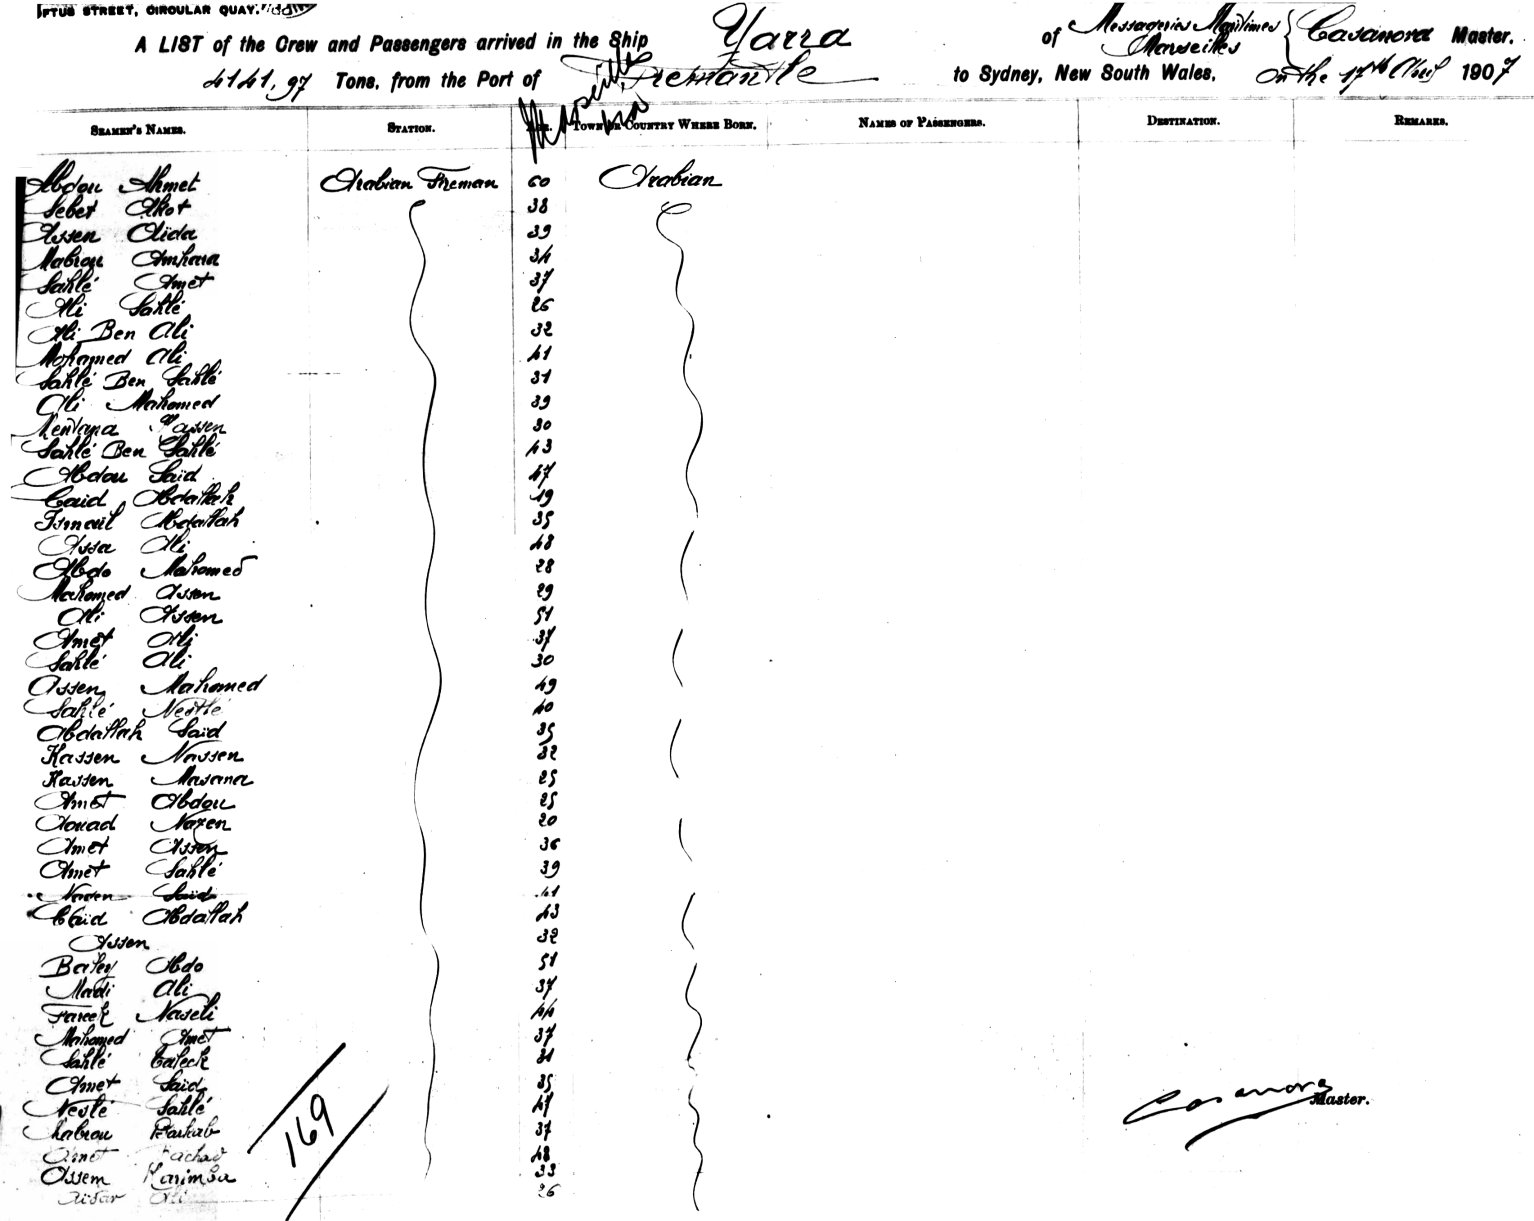 FTUS STREET, CIRCULAR QUAY.
A LIST of the Crew and Passengers arrived in the Ship Yarra of Messageries Maritimes Marseilles Casanova Master.
4141,97 Tons, from the Port of Fremantle to Sydney, New South Wales, On the 17th April 1907
Marseilles
SEAMEN'S NAMES. STATION. AGE. TOWN OR COUNTRY WHERE BORN. NAMES OF PASSENGERS. DESTINATION. REMARKS.
Abdou Ahmet Arabian Fireman 60 Arabian
Sebet Akot 38
Assen Aïda 39
Mabrou Amhara 34
Sahlé Amet 37
Ali Sahlé 26
Ali Ben Ali 32
Mohamed Ali 41
Sahlé Ben Sahlé 31
Ali Mahomed 39
Hassen 30
Sahlé Ben Sahlé 43
Abdou Saïd 47
Caïd Abdallah 49
Ismaïl Abdallah 35
Assa Ali 48
Abdo Mahomed 28
Mahomed Assen 29
Ali Assen 51
Amet Ali 37
Sahlé Ali 30
Assen Mahomed 49
Sahlé Nestlé 40
Abdallah Saïd 35
Kassen Nassen 32
Kassen Masana 25
Amet Abdou 25
Aouad Nazen 20
Amet Assen 36
Amet Sahlé 39
Nasen Saïd 41
Caïd Abdallah 43
Assen 32
Baley Abdo 51
Madi Ali 37
Fareh Naseli 44
Mahomed Amet 37
Sahlé Caleck 31
Amet Saïd 35
Neslé Sahlé 41
Mabrou 37
Amet 48
Assem Karimba 33
Ali 26
169
Casanova
Master.